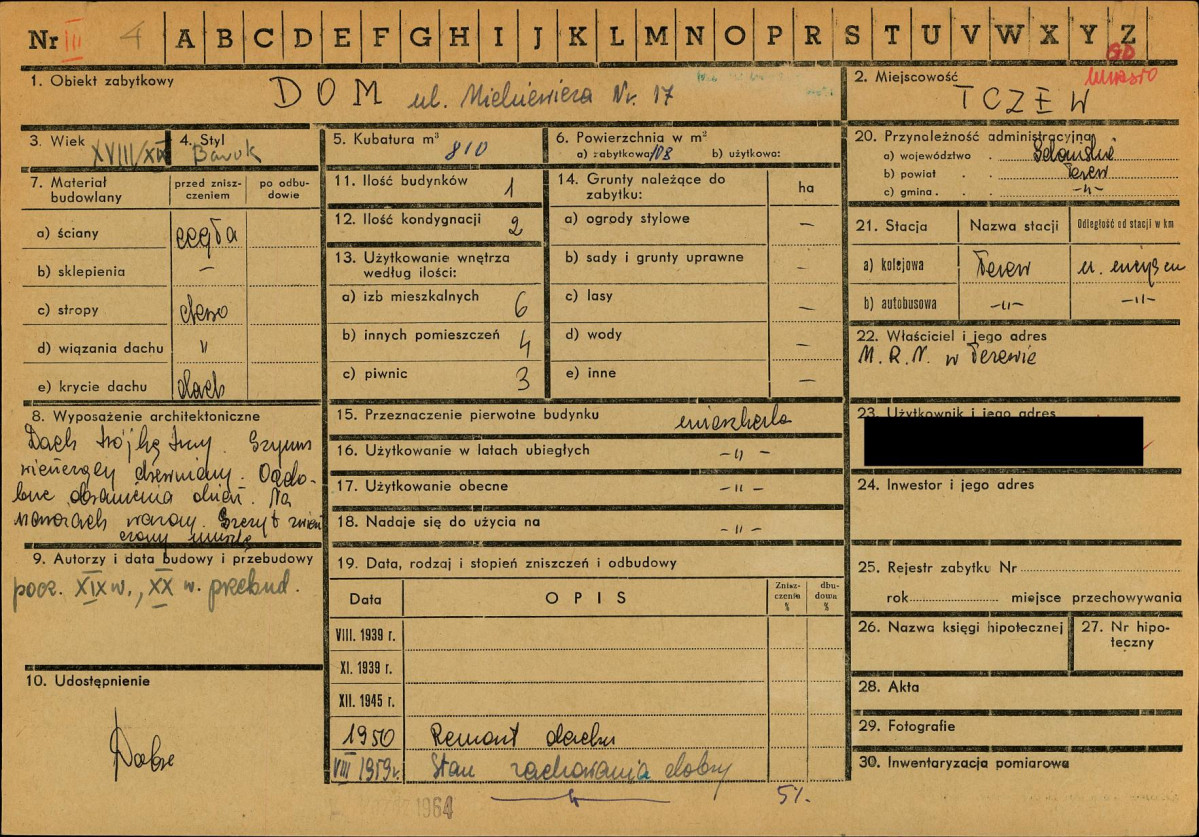 Nr III 4 A B C D E F G H I J K L M N O P R S T U V W X Y Z
GD
miasto
1. Obiekt zabytkowy DOM ul. Mickiewicza Nr. 17
2. Miejscowość TCZEW
3. Wiek XVIII/XIX
4. Styl Barok
5. Kubatura m³ 810
6. Powierzchnia w m²
a) zabytkowa 108 b) użytkowa:
7. Materiał budowlany
przed zniszczeniem
po odbudowie
a) ściany cegła
b) sklepienia –
c) stropy drewno
d) wiązania dachu "
e) krycie dachu dach
8. Wyposażenie architektoniczne
Dach trójkątny. Gzyms
wieńczący drewniany. Ozdo-
bne obramienia okien. Na
narożach wazony. Szczyt zwień
czony muszlą
9. Autorzy i data budowy i przebudowy
pocz. XIX w., XX w. przebud.
10. Udostępnienie
Dobre
11. Ilość budynków 1
12. Ilość kondygnacji 2
13. Użytkowanie wnętrza według ilości:
a) izb mieszkalnych 6
b) innych pomieszczeń 4
c) piwnic 3
14. Grunty należące do zabytku:
ha
a) ogrody stylowe –
b) sady i grunty uprawne –
c) lasy –
d) wody –
e) inne –
15. Przeznaczenie pierwotne budynku mieszkalne
16. Użytkowanie w latach ubiegłych -"-
17. Użytkowanie obecne -"-
18. Nadaje się do użycia na -"-
19. Data, rodzaj i stopień zniszczeń i odbudowy
Data OPIS Zniszczenie % dbudowa %
VIII. 1939 r.
XI. 1939 r.
XII. 1945 r.
1950 Remont dachu
VIII 1959r. Stan zachowania dobry
1964 5%.
20. Przynależność administracyjna
a) województwo . Gdańskie
b) powiat . . Tczew
c) gmina . . -"-
21. Stacja
Nazwa stacji
Odległość od stacji w km
a) kolejowa Tczew w miejscu
b) autobusowa -"- -"-
22. Właściciel i jego adres
M.R.N. w Tczewie
23. Użytkownik i jego adres
24. Inwestor i jego adres
25. Rejestr zabytku Nr
rok miejsce przechowywania
26. Nazwa księgi hipotecznej
27. Nr hipoteczny
28. Akta
29. Fotografie
30. Inwentaryzacja pomiarowa